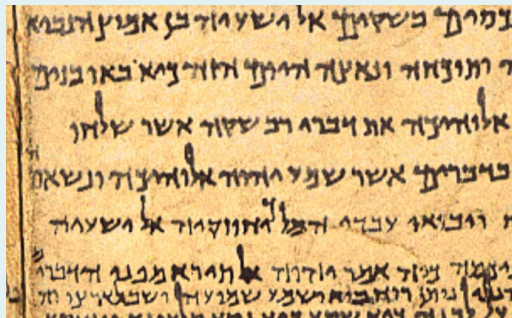 בשקים אל ישעיה בן אמוץ הנביא
ותוכחה ונאצה היום הזה כיא באו בנים
אלוהיכה את דברי רב שקה אשר שלחו
בדברים אשר שמע יהוה אלוהיכה ונשאתה
ויבואו עבדי המלך יחוזקיה אל ישעיה
כוה אמר יהוה אל תירא מפני הדברים
נותן רוח בוא ושמע שמועה ושב לארצו